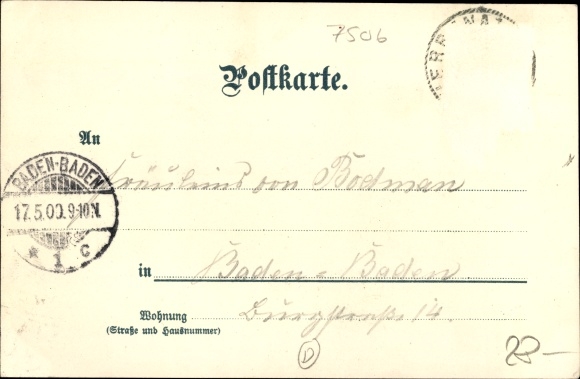 7506
Postkarte.
An
BADEN-BADEN
17.5.00.9-10N.
* 1 c
Fräuleins von Bodman
in Baden-Baden
Wohnung Burgstraße 14.
(Straße und Hausnummer)
D